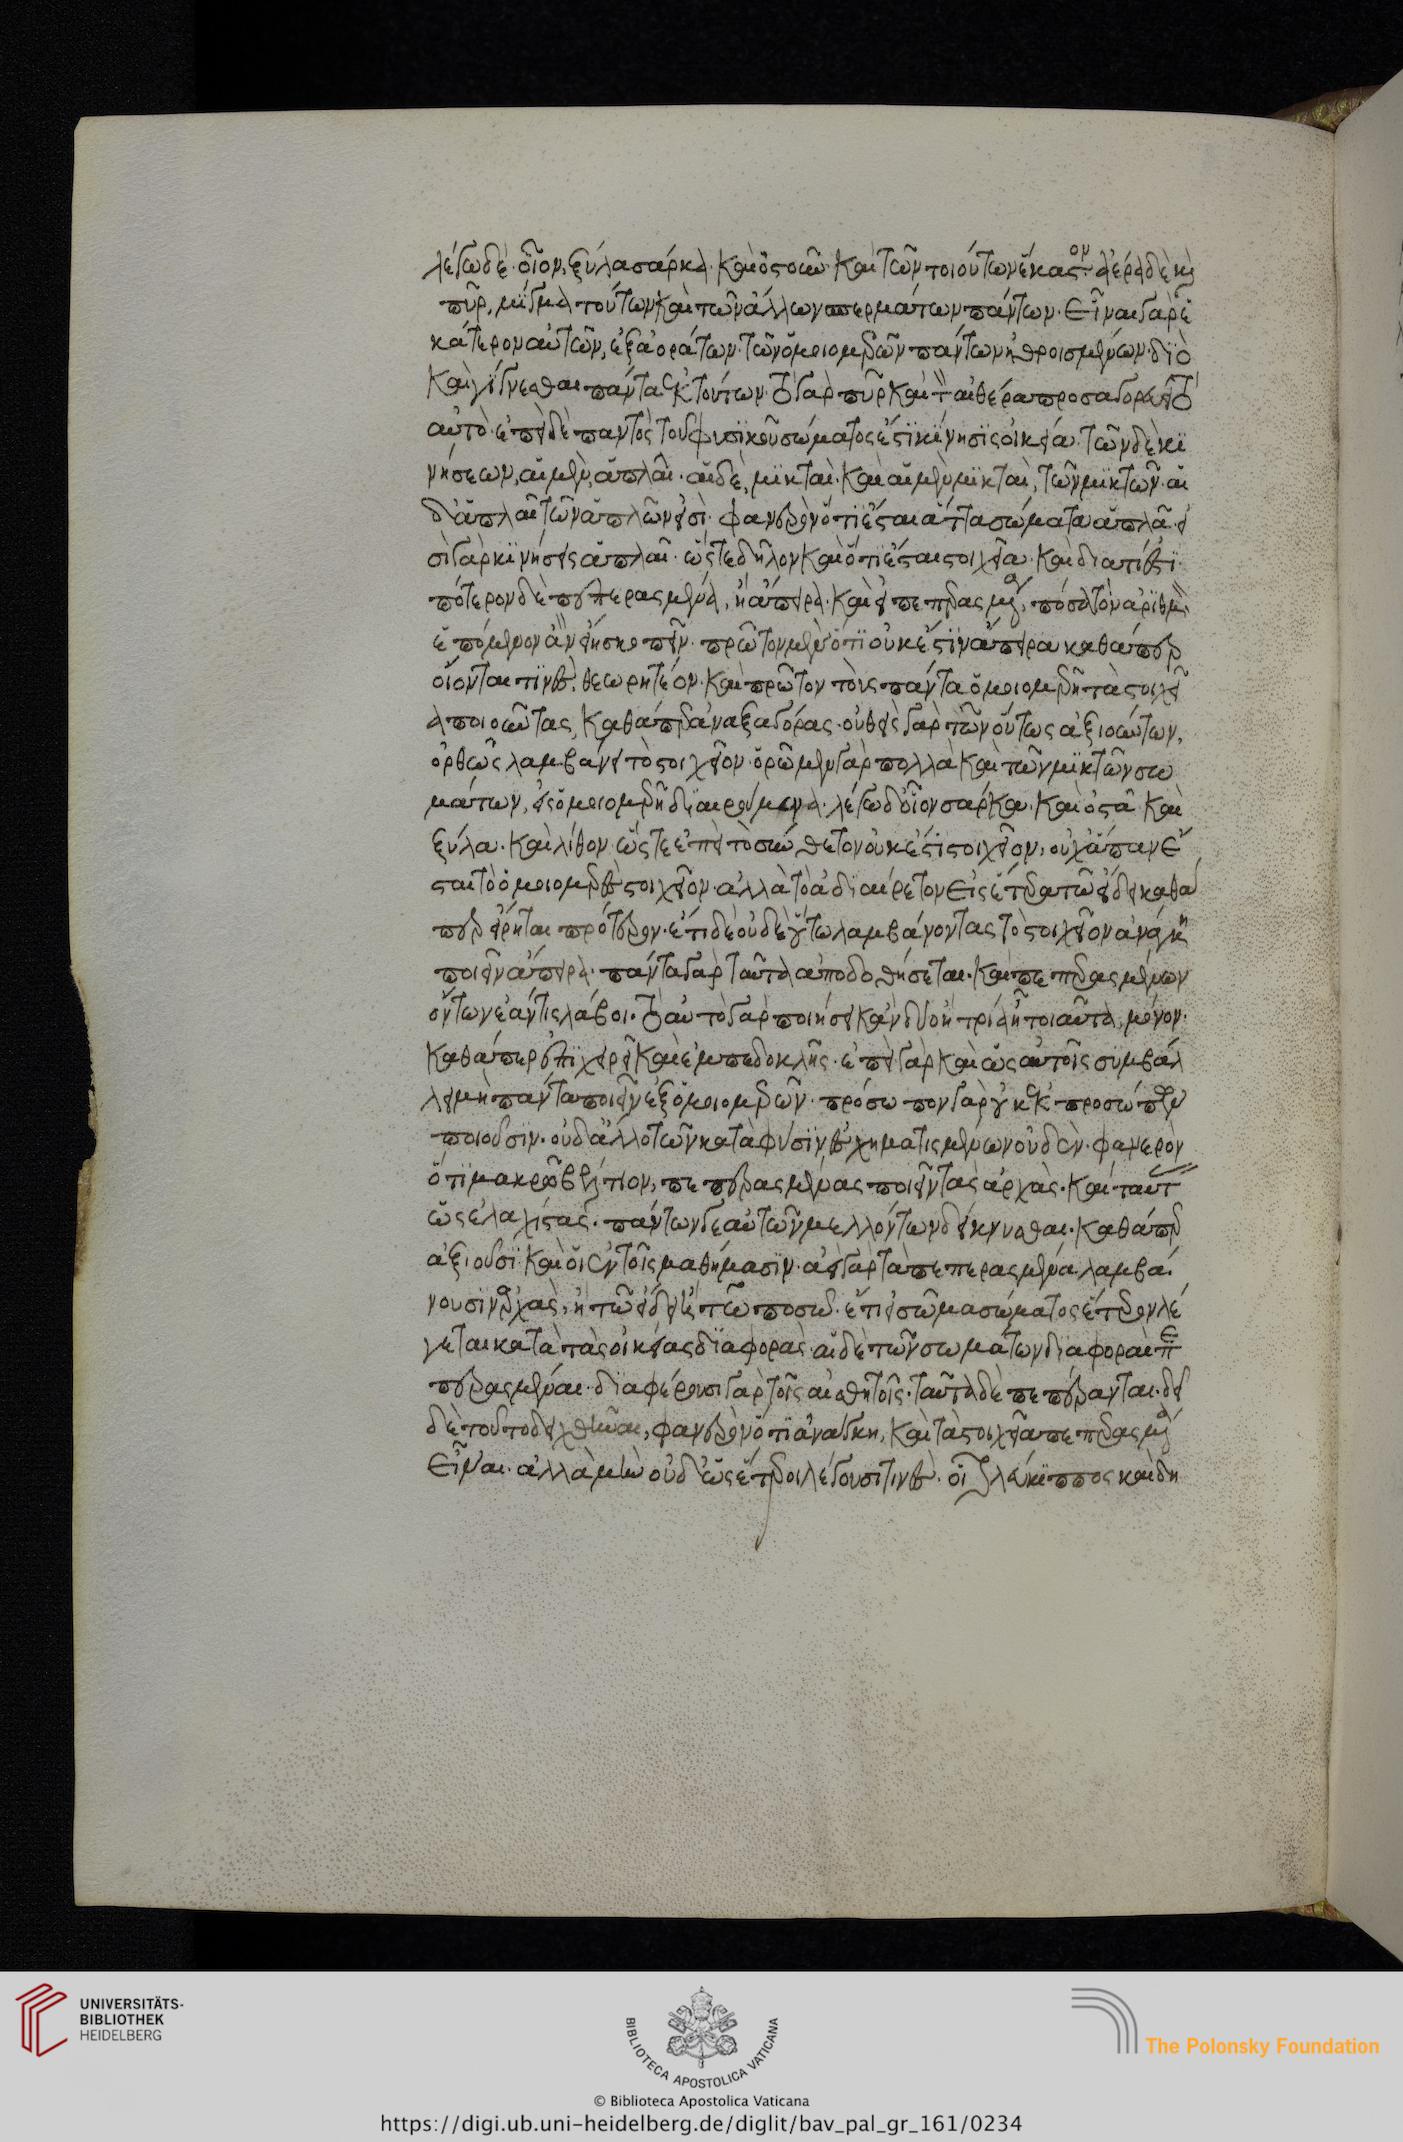 λέγω δὲ οἷον, ξύλα σάρκα καὶ ὀστοῦν καὶ τῶν τοιούτων ἕκαστον ἀέρα δὲ καὶ
πῦρ, μίγμα τούτων καὶ τῶν ἄλλων σπερμάτων πάντων. εἶναι γὰρ ἑ
κάτερον αὐτῶν, ἐξ ἀοράτων τῶν ὁμοιομερῶν πάντων ἠθροισμένων. διὸ
καὶ γίγνεσθαι πάντα ἐκ τούτων. τὸ γὰρ πῦρ καὶ τὸν αἰθέρα προσαγορεύει τὸ
αὐτὸ. ἐπεὶ δὲ παντὸς τοῦ φυσικοῦ σώματος ἐστὶ κίνησις οἰκεία. τῶν δὲ κι
νήσεων, αἱ μὲν, ἁπλαῖ. αἱ δὲ, μικταὶ. καὶ αἱ μὲν μικταὶ, τῶν μικτῶν. αἱ
δ᾽ ἁπλαῖ τῶν ἁπλῶν εἰσὶ. φανερὸν ὅτι ἔσται ἄττα σώματα ἁπλᾶ. εἰ
σὶ γὰρ κινήσεις ἁπλαῖ. ὥστε δῆλον καὶ ὅτι ἔσται στοιχεῖα. καὶ διατί ἐστι.
πότερον δὲ πεπερασμένα, ἢ ἄπειρα. καὶ εἰ πεπερασμένα, πόσα τὸν ἀριθμὸν
ἑπόμενον ἂν εἴη σκοπεῖν. πρῶτον μὲν ὅτι οὐκ ἔστιν ἄπειρα καθάπερ
οἴονται τινὲς, θεωρητέον. καὶ πρῶτον τοὺς πάντα ὁμοιομερῆ τὰ στοιχεῖ
α ποιοῦντας, καθάπερ ἀναξαγόρας. οὐθεὶς γὰρ τῶν οὕτως ἀξιούντων,
ὀρθῶς λαμβάνει τὸ στοιχεῖον. ὁρῶμεν γὰρ πολλὰ καὶ τῶν μικτῶν σω
μάτων, εἰς ὁμοιομερῆ διαιρούμενα. λέγω δ᾽ οἷον σάρκα. καὶ ὀστᾶ. καὶ
ξύλα. καὶ λίθον. ὥστε ἐπεὶ τὸ σύνθετον οὐκ ἔστι στοιχεῖον, οὐχ ἅπαν ἔ
σται τὸ ὁμοιομερὲς στοιχεῖον. ἀλλὰ τὸ ἀδιαίρετον εἰς ἕτερα τῷ εἴδει καθά
περ εἴρηται πρότερον. ἔτι δὲ οὐδὲ οὕτω λαμβάνοντας τὸ στοιχεῖον ἀνάγκη
ποιεῖν ἄπειρα. πάντα γὰρ ταῦτα ἀποδοθήσεται. καὶ πεπερασμένων
ὄντων ἐάν τις λάβοι. τὸ αὐτὸ γὰρ ποιήσει κἂν δύο ἢ τρία ᾖ τοιαῦτα, μόνον.
καθάπερ ἐπιχειρεῖ καὶ ἐμπεδοκλῆς. ἐπεὶ γὰρ καὶ ὣς αὐτοῖς συμβάλ
λει μὴ πάντα ποιεῖν ἐξ ὁμοιομερῶν. πρόσωπον γὰρ οὐκ ἐκ προσώπων
ποιοῦσιν. οὐδ᾽ ἄλλο τῶν κατὰ φύσιν ἐσχηματισμένων οὐδὲν. φανερὸν
ὅτι μακρῷ βέλτιον, πεπερασμένας ποιεῖν τὰς ἀρχὰς. καὶ ταύτας
ὡς ἐλαχίστας. πάντων γε αὐτῶν μελλόντων δείκνυσθαι. καθάπερ
ἀξιοῦσι καὶ οἱ ἐν τοῖς μαθήμασιν. ἀεὶ γὰρ τὰ πεπερασμένα λαμβά
νουσιν ἀρχὰς, ἢ τῷ εἴδει ἢ τῷ ποσῷ. ἔτι εἰ σῶμα σώματος ἕτερον λέ
γεται κατὰ τὰς οἰκείας διαφορὰς αἱ δὲ τῶν σωμάτων διαφοραὶ πε
περασμέναι. διαφέρουσι γὰρ τοῖς αἰσθητοῖς. ταῦτα δὲ πεπέρανται. δεῖ
δὲ τοῦτο δειχθῆναι, φανερὸν ὅτι ἀνάγκη, καὶ τὰ στοιχεῖα πεπερασμένα
εἶναι. ἀλλὰ μὴν οὐδ᾽ ὡς ἕτεροι λέγουσι τινὲς. οἷον λεύκιππος καὶ δη
UNIVERSITÄTS-
BIBLIOTHEK
HEIDELBERG
BIBLIOTECA APOSTOLICA VATICANA
The Polonsky Foundation
© Biblioteca Apostolica Vaticana
https://digi.ub.uni-heidelberg.de/diglit/bav_pal_gr_161/0234